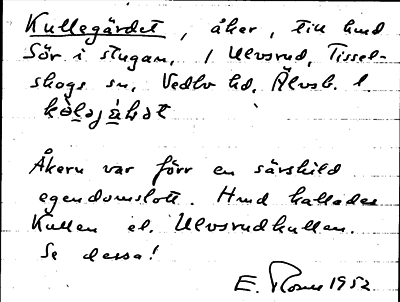 Kullegärdet, åker, till hmd
Sör i stugan, i Ulvsrud, Tissel-
skogs sn, Vedbo hd, Älvsb. l.
Åkern var förr en särskild
egendomslott. Hmd kallades
Kullen el. Ulvsrudkullen.
Se dessa!
E. 1952